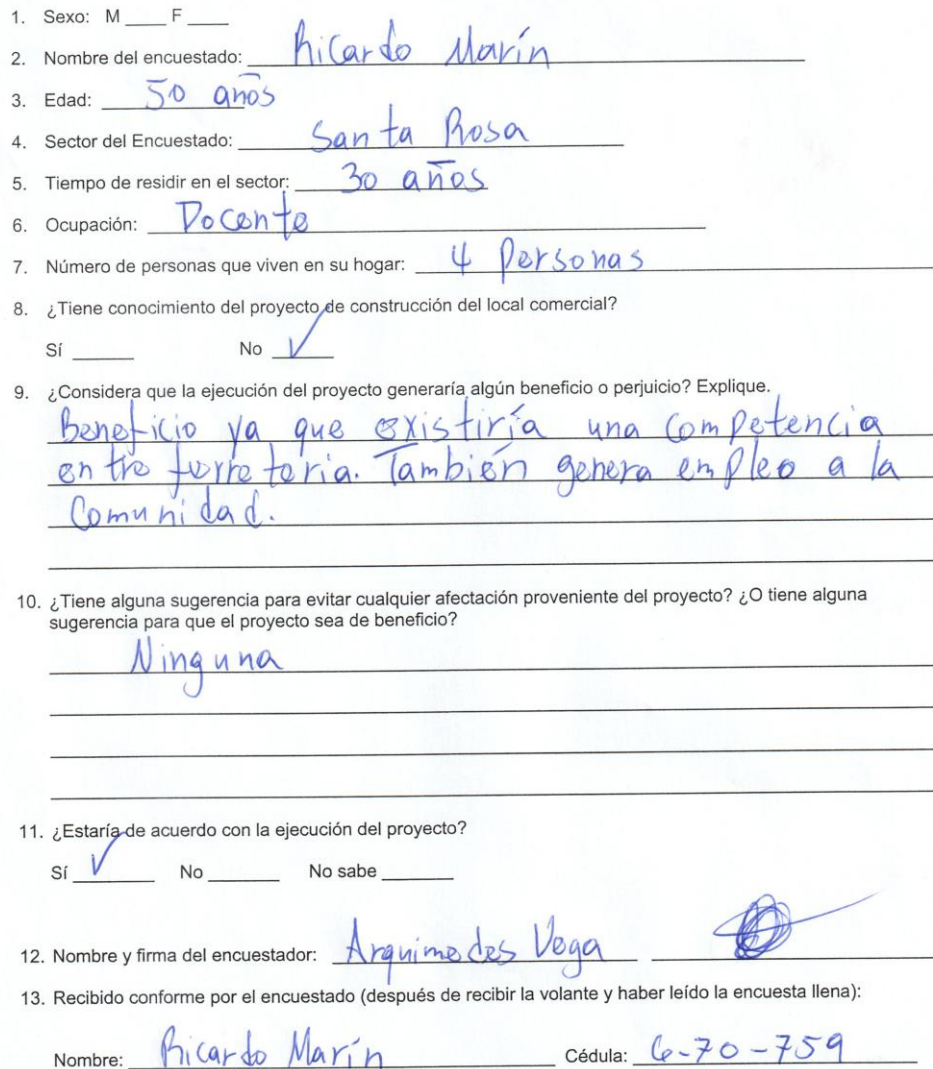 1. Sexo: M ____ F ____
2. Nombre del encuestado: Ricardo Marín
3. Edad: 50 años
4. Sector del Encuestado: Santa Rosa
5. Tiempo de residir en el sector: 30 años
6. Ocupación: Docente
7. Número de personas que viven en su hogar: 4 Personas
8. ¿Tiene conocimiento del proyecto de construcción del local comercial?
Sí ______ No ✓
9. ¿Considera que la ejecución del proyecto generaría algún beneficio o perjuicio? Explique.
Beneficio ya que existiría una Competencia
entre ferreteria. También genera empleo a la
Comunidad.
10. ¿Tiene alguna sugerencia para evitar cualquier afectación proveniente del proyecto? ¿O tiene alguna
sugerencia para que el proyecto sea de beneficio?
Ninguna
11. ¿Estaría de acuerdo con la ejecución del proyecto?
Sí ✓ No _______ No sabe _______
12. Nombre y firma del encuestador: Arquimedes Vega
13. Recibido conforme por el encuestado (después de recibir la volante y haber leído la encuesta llena):
Nombre: Ricardo Marín Cédula: 6-70-759